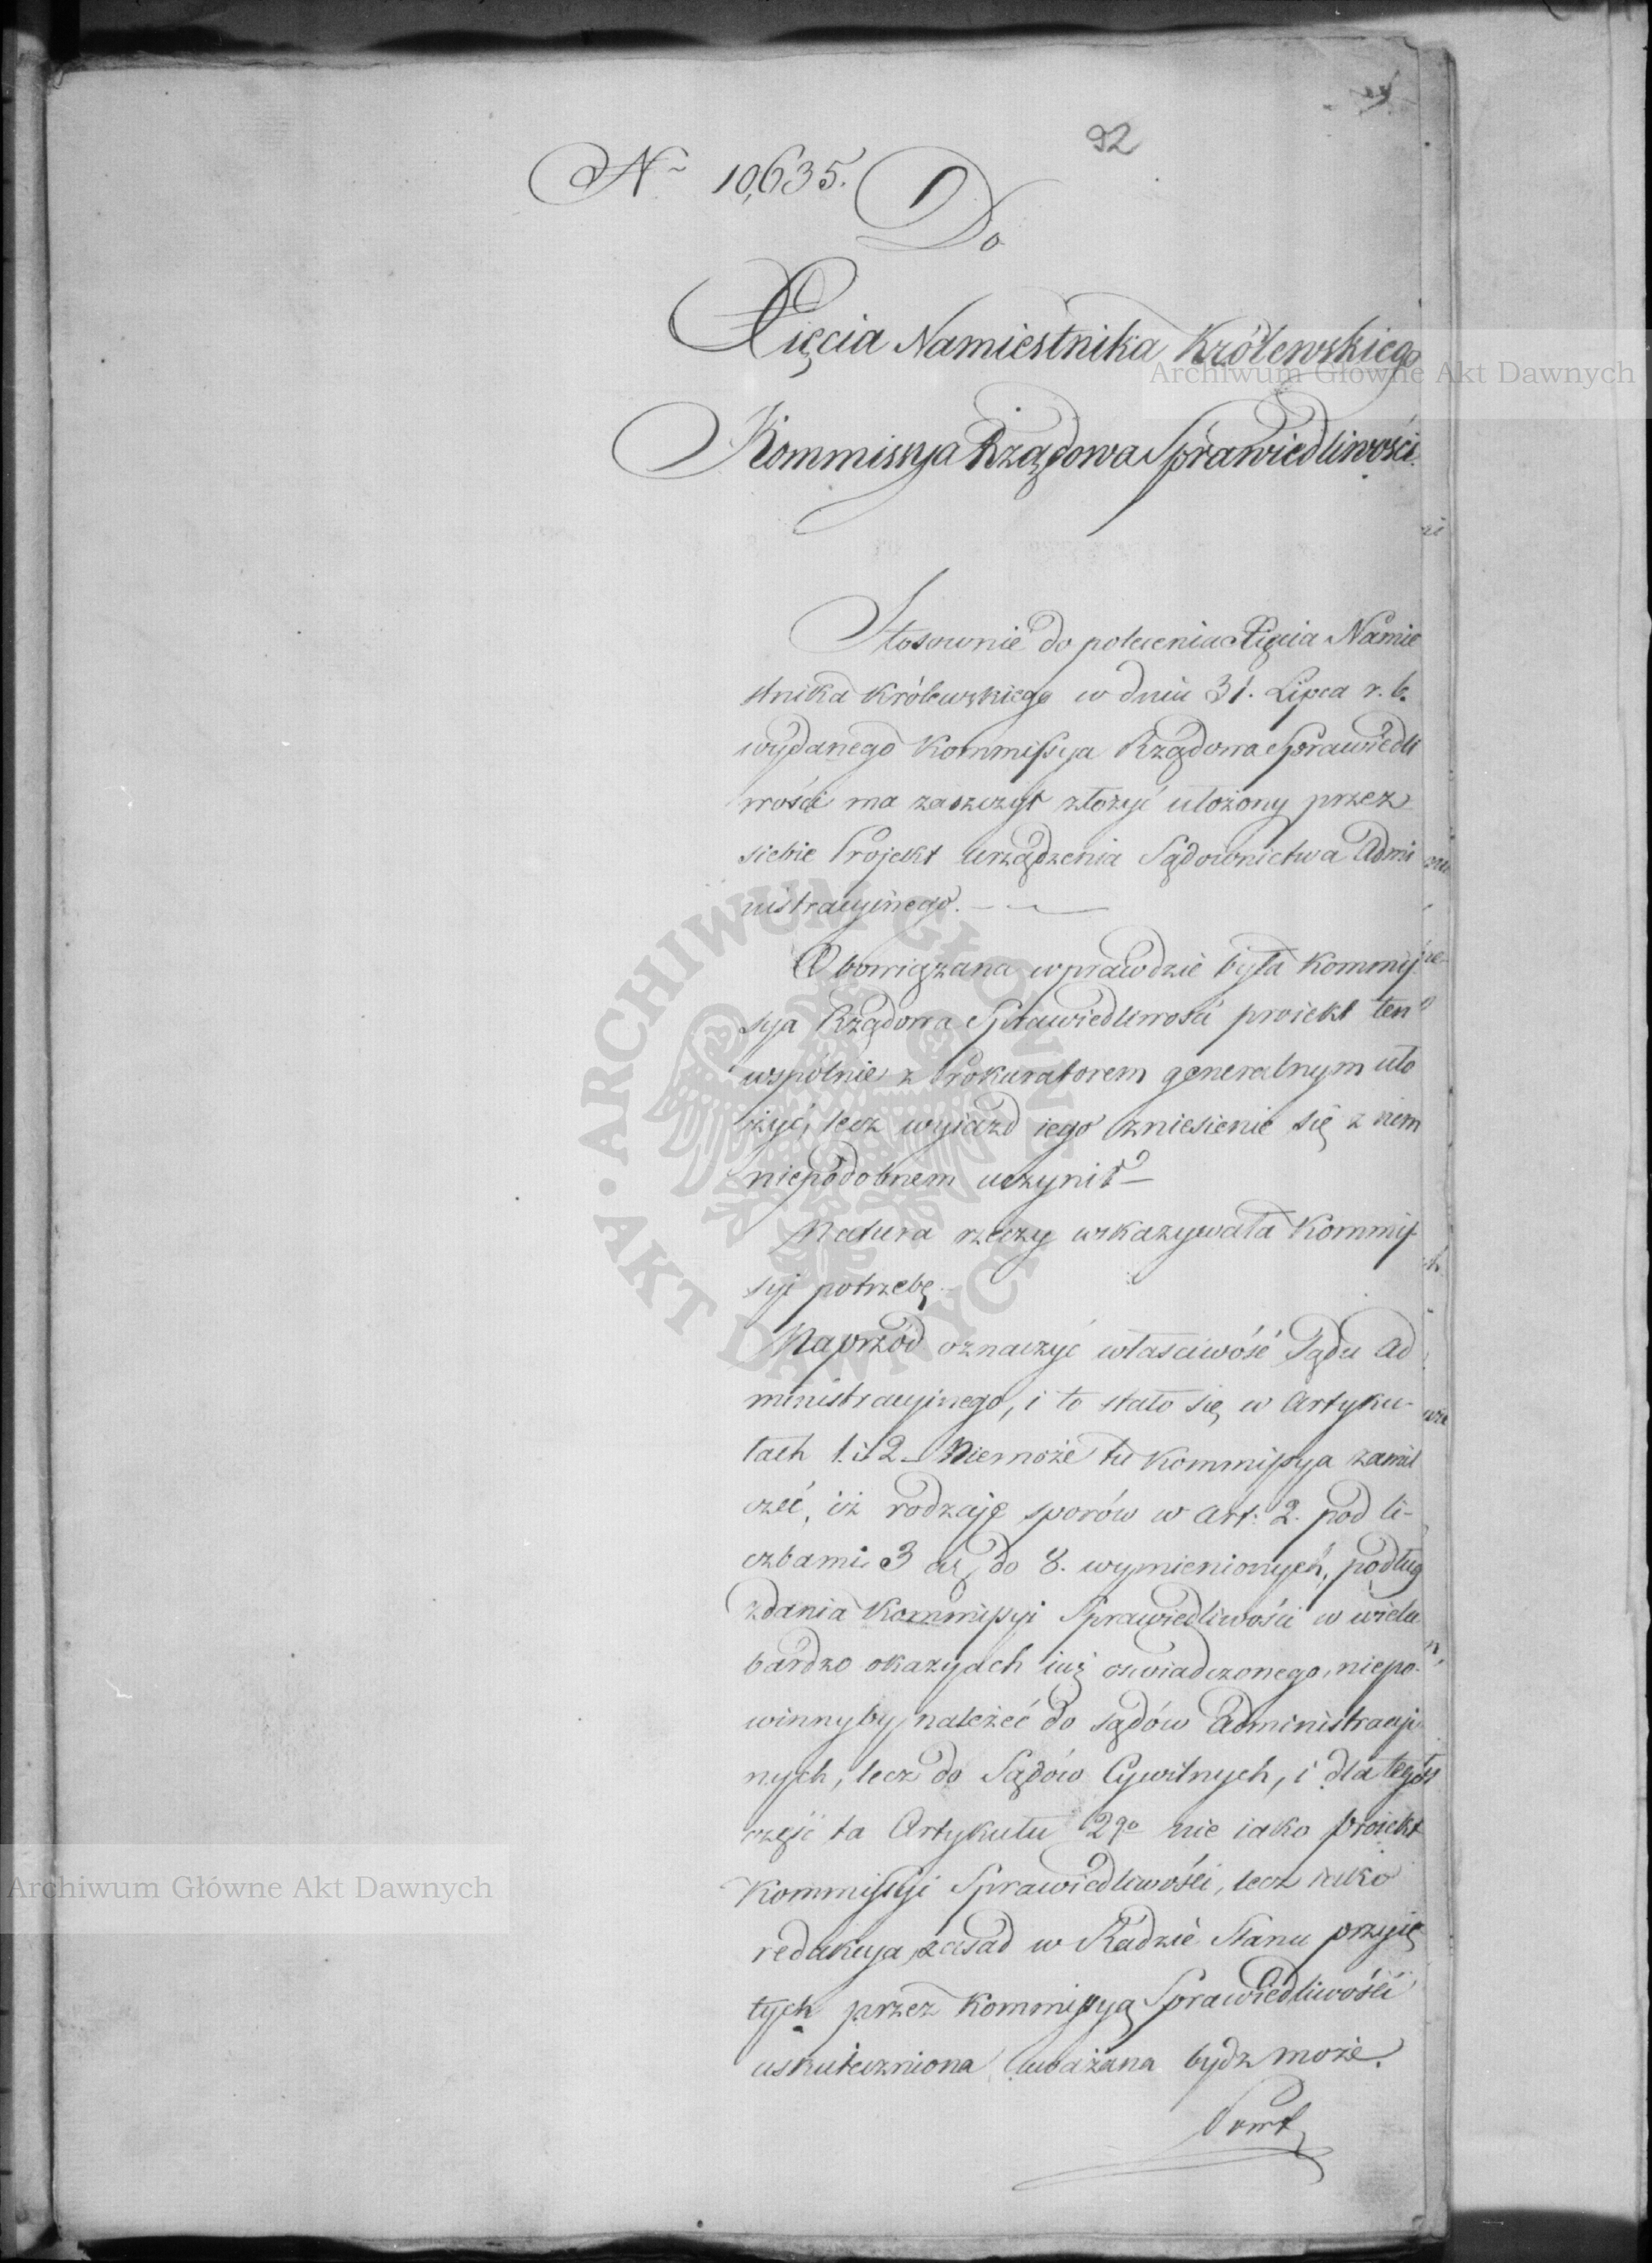 92
No 10,635.
Do
Xięcia Namiestnika Królewskiego
Kommissya Rządowa Sprawiedliwości.
Stosownie do polecenia Xięcia Namie
stnika Królewskiego w dniu 31. Lipca r. b.
wydanego Kommissya Rządowa Sprawiedli
wości ma zaszczyt złożyć ułożony przez
siebie Projekt urządzenia Sądownictwa Admi
nistracyjnego. —
Obowiązana wprawdzie była Kommis
sya Rządowa Sprawiedliwości proiekt ten
wspólnie z Prokuratorem generalnym uło
żyć, lecz wyiazd iego zniesienie się z nim
niepodobnem uczynił —
Natura rzeczy wskazywała Kommis
syi potrzebę
Naprzód oznaczyć własciwość Sądu Ad
ministracyjnego, i to stało się w Artyku-
łach 1. i 2. — Niemoże tu Kommissya zamil
czeć, iż rodzaje sporów w Art: 2. pod li-
czbami 3 aż do 8. wymienionych, podług
zdania Kommissyi Sprawiedliwości w wielu
bardzo okazyach iuż oswiadczonego, niepo-
winnyby należeć do sądów Administracyj
nych, lecz do Sądów Cywilnych, i dla tego
część ta Artykułu 2go nie iako proiekt
Kommissyi Sprawiedliwości, lecz iako
redakcya zasad w Radzie Stanu przyię
tych przez Kommissyą Sprawiedliwości
uskuteczniona uważana bydz może.
Archiwum Główne Akt Dawnych
Archiwum Główne Akt Dawnych
ARCHIWUM GŁÓWNE AKT DAWNYCH